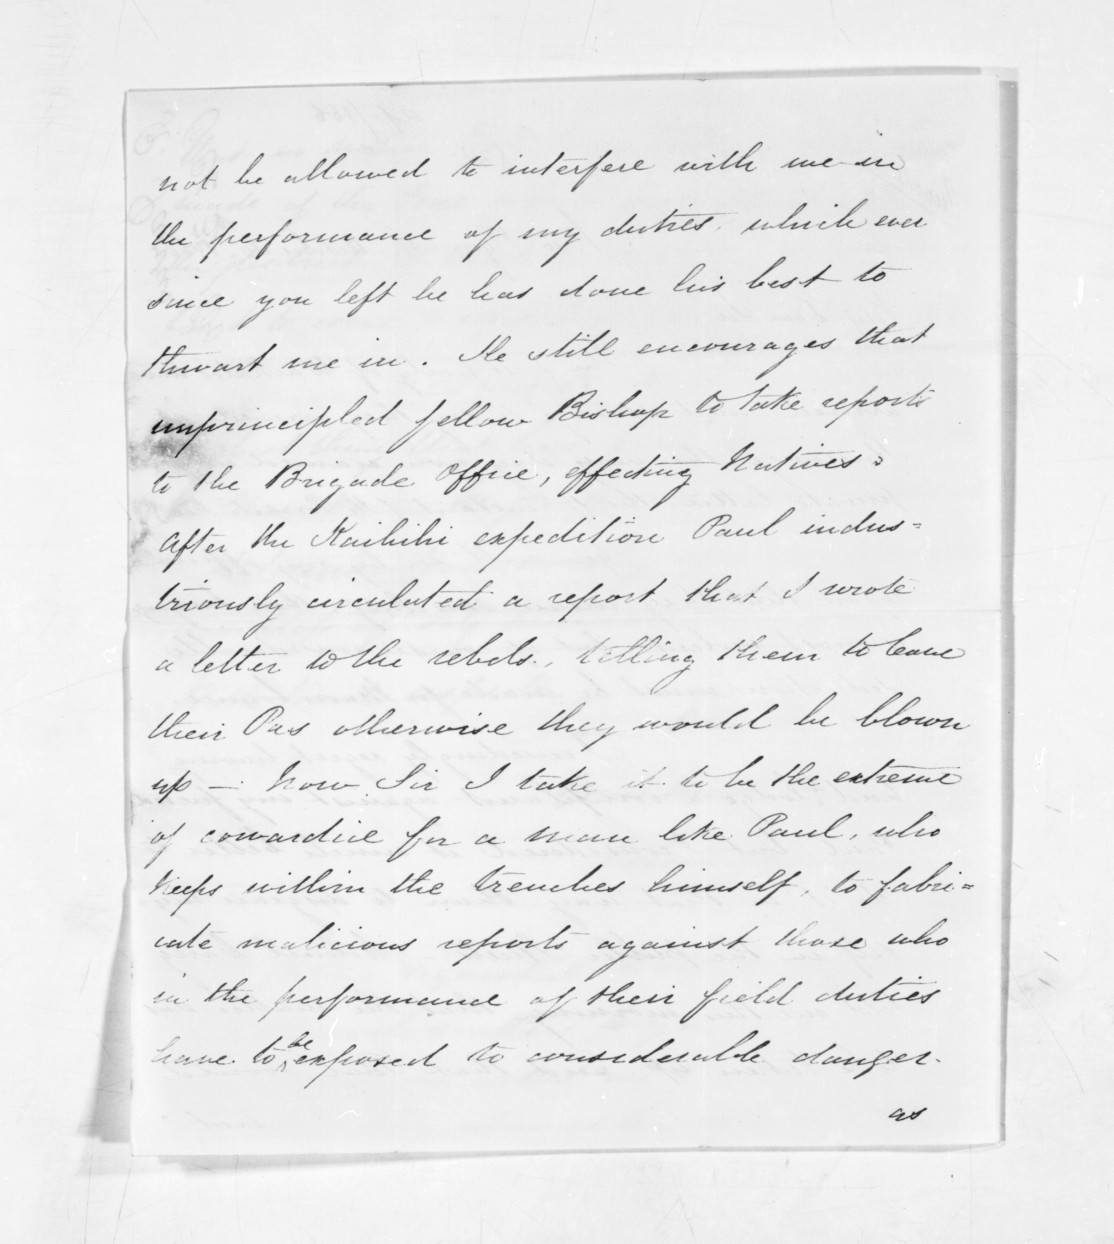 not be allowed to interfere with me in
the performance of my duties, which ever
since you left he has done his best to
thwart me in. He still encourages that
unprincipled fellow Bishop to take reports
to the Brigade Office, effecting Natives:
after the Kaihihi expedition Paul indus=
triously circulated a report that I wrote
a letter to the rebels, telling them to leave
their Pas otherwise they would be blown
up — Now Sir I take it to be the extreme
of cowardice for a man like Paul, who
keeps within the trenches himself, to fabri=
cate malicious reports against those who
in the performance of their field duties
have to be exposed to considerable danger.
as